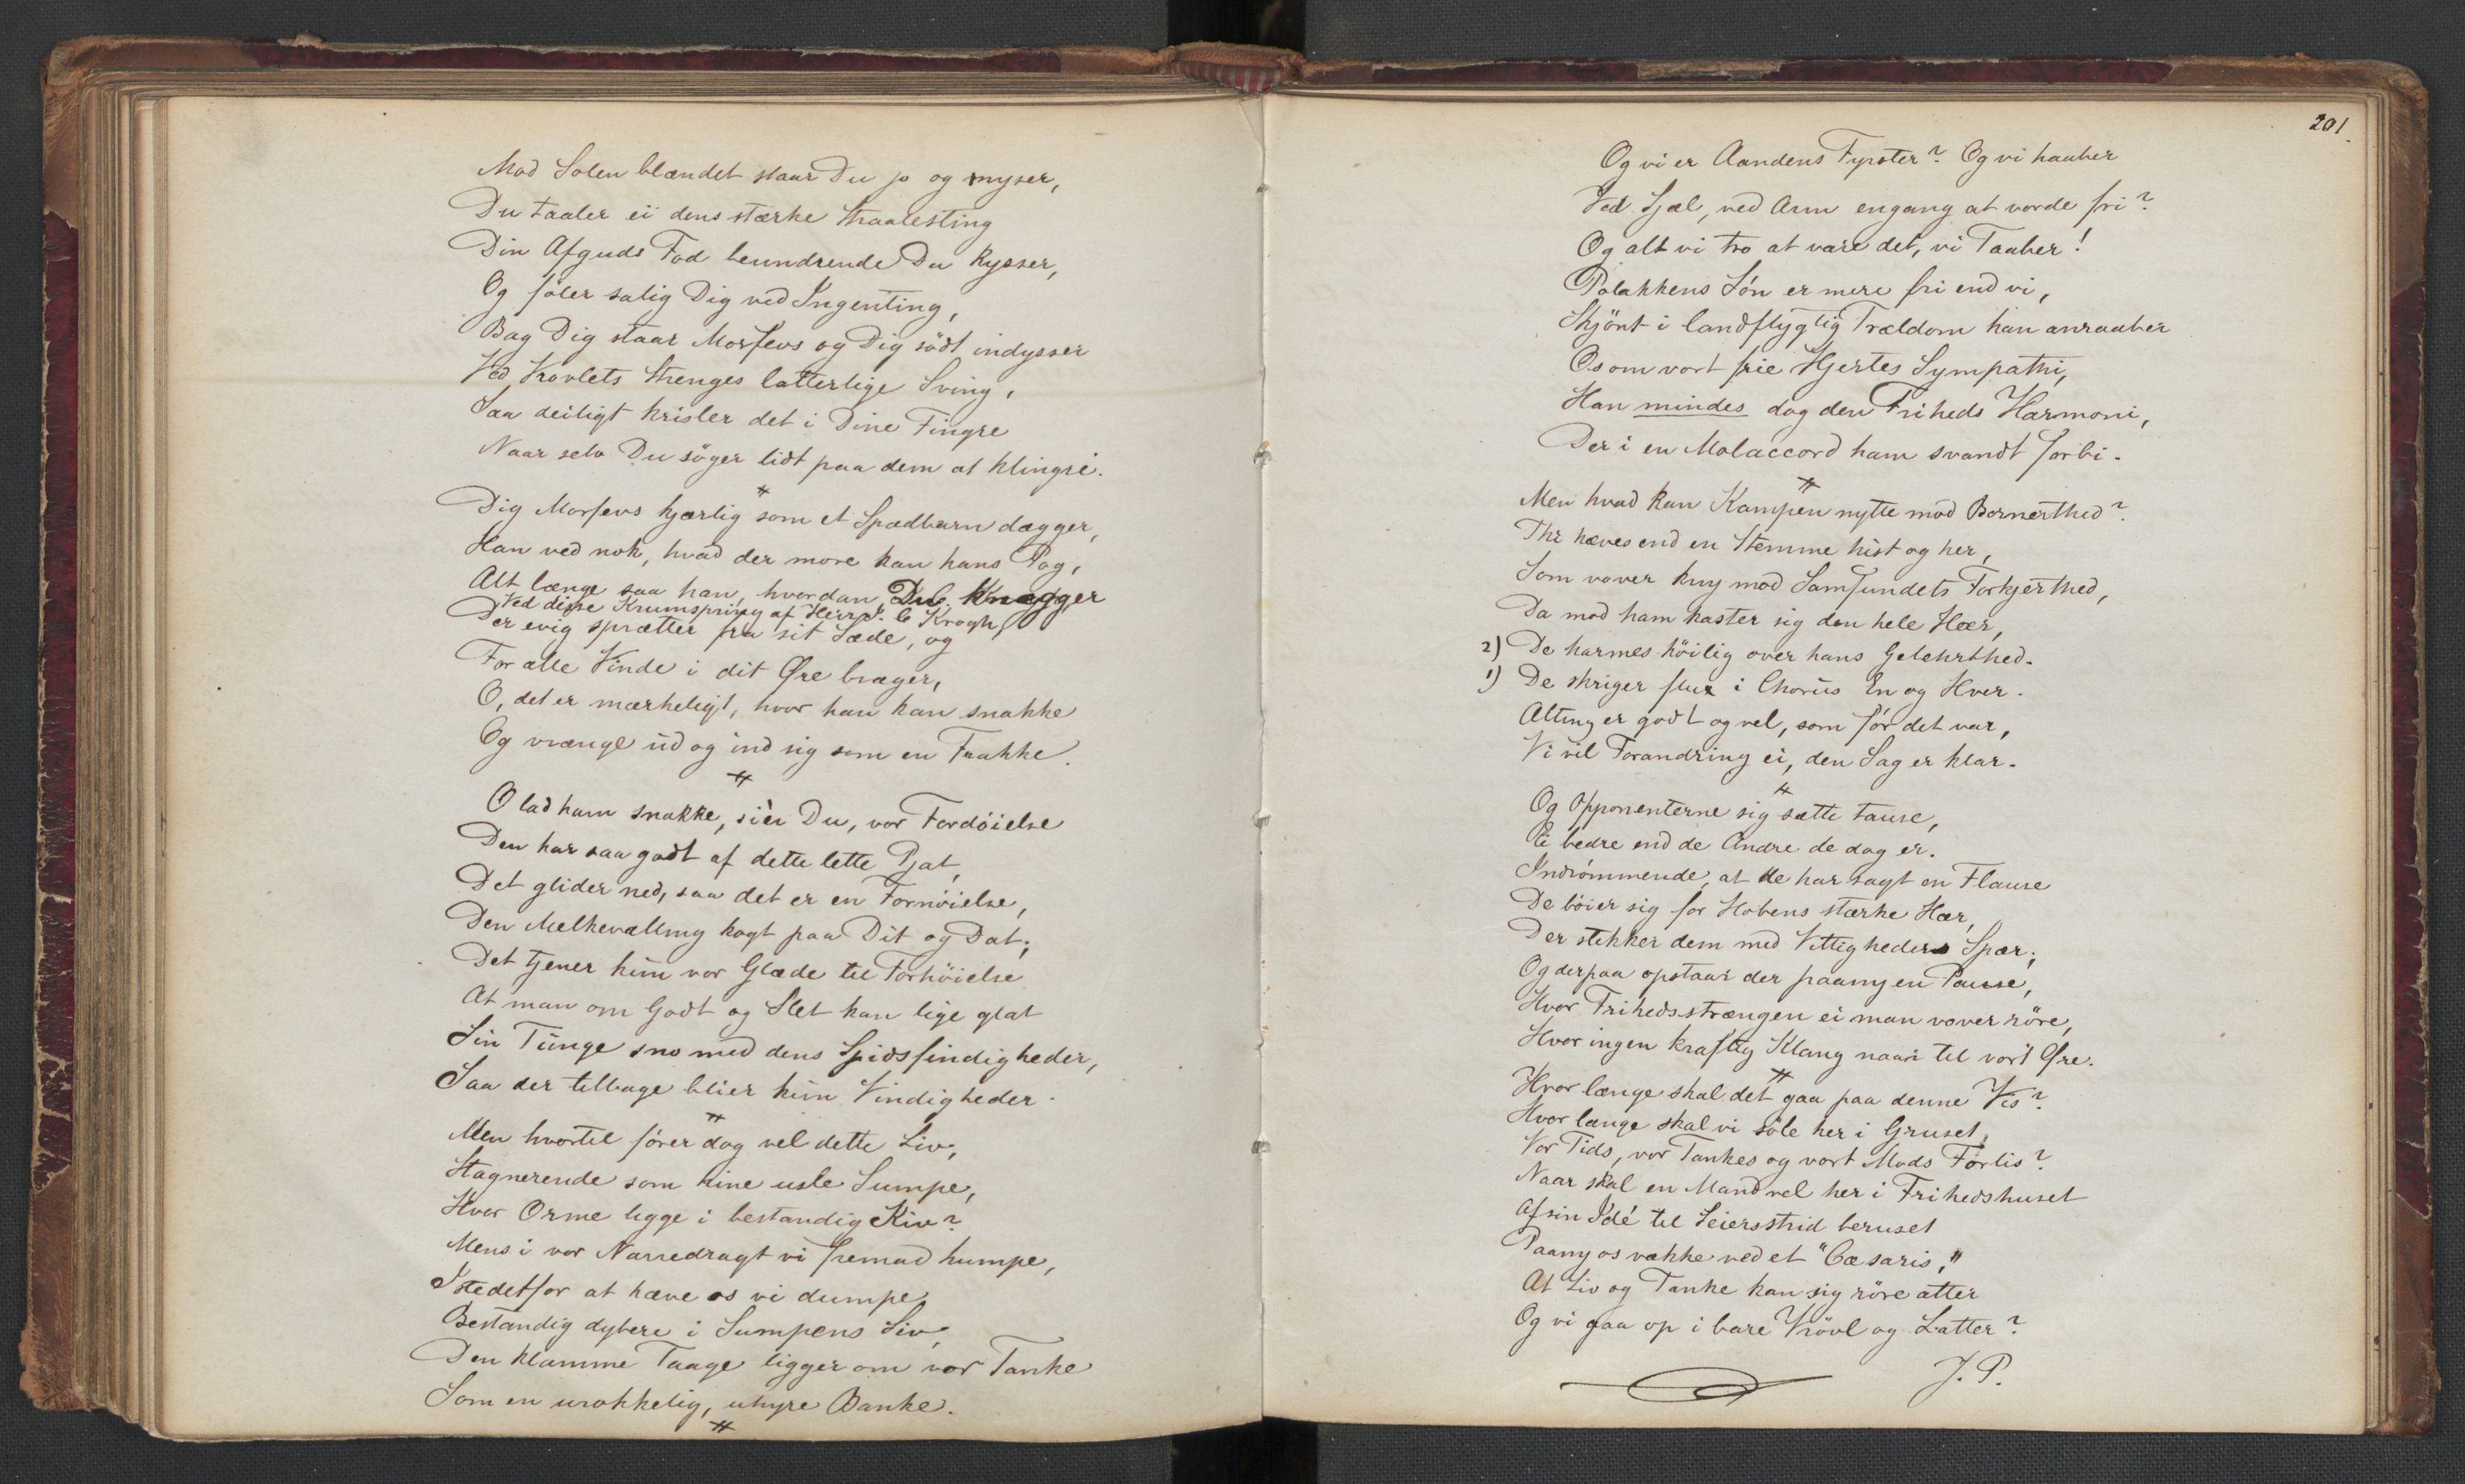 Mod Solen blændet staar Du jo og myser,
Du taaler ei dens stærke Straalesting
Din Afguds Fod beundrende Du Kysser,
Og føler salig Dig ved Ingenting,
Bag Dig staar Morfevs og Dig södt indysser
Ved Vrövlets Strenges latterlige Sving,
Saa deiligt krisler det i Dine Fingre
Naar selv Du söger lidt paa dem at klingre.
#
Dig Morfevs kjærlig som et Spædbarn dægger,
Han ved nok, hvad der more kan hans Pog,
Alt længe saa han, hvordan Du Knægger
Ved disse Krumspring af Herr J. C Krogh,
Der evig sprætter fra sit Sæde, og
For alle Vinde i dit Øre bræger,
O, det er mærkeligt, hvor han kan snakke
Og vrænge ud og ind sig som en Frakke.
#
O lad ham snakke, siér Du, vor Fordöielse
Den har saa godt af dette lette Pjat,
Det glider ned, saa det er en Fornöielse,
Den Melkevælling kogt paa Dit og Dat;
Det tjener kun vor Glæde til Forhöielse
At man om Godt og Slet kan lige glat
Sin Tunge sno med dens Spidsfindigheder,
Saa der tilbage blier kun Vindigheder.
#
Men hvortil förer dog vel dette Liv,
Stagnerende som hine usle Sumpe,
Hvor Orme ligge i bestandig Kiv?
Mens i vor Narredragt vi fremad humpe,
Istedetfor at hæve os vi dumpe
Bestandig dybere i Sumpens Siv,
Den klamme Taage ligger om vor Tanke
Som en urokkelig, uhyre Banke.
#
201
Og vi er Aandens Fyrster? Og vi haaber
Ved Sjæl, ved Arm engang at vorde fri?
Og alt vi tro at være det, vi Taaber!
Polakkens Sön er mere fri end vi,
Skjönt i landflygtig Trældom han anraaber
Os om vort frie Hjertes Sympathi,
Han mindes dog den Friheds Harmoni,
Der i en Molaccord ham svandt forbi.
#
Men hvad kan Kampen nytte mod Bornerthed?
Thi hæves end en Stemme hist og her,
Som vover kny mod Samfundets Forkjerthed,
Da mod ham kaster sig den hele Hær,
2) De harmes höilig over hans Gelehrthed.
1) De skriger flux i Chorus En og Hver.
Alting er godt og vel, som för det var,
Vi vil Forandring ei, den Sag er klar.
#
Og Opponenterne sig sætte tause,
Ei bedre end de Andre de dog er.
Indrömmende, at de har sagt en Flause
De böier sig for Hobens stærke Hær,
Der stikker dem med Vittigheders Spær;
Og derpaa opstaar der paany en Pause,
Hvor Frihedsstrængen ei man vover röre,
Hvor ingen kraftig Klang naar til vort Øre.
#
Hvor længe skal det gaa paa denne Vis?
Hvor længe skal vi söle her i Gruset
Vor Tids, vor Tankes og vort Mods Forlis?
Naar skal en Mand vel her i Frihedshuset
Af sin Idé til Seiersstrid beruset
Paany os vække ved et "Cæsaris,"
At Liv og Tanke kan sig röre atter
Og vi gaa op i bare Vrövl og Latter?
J. P.